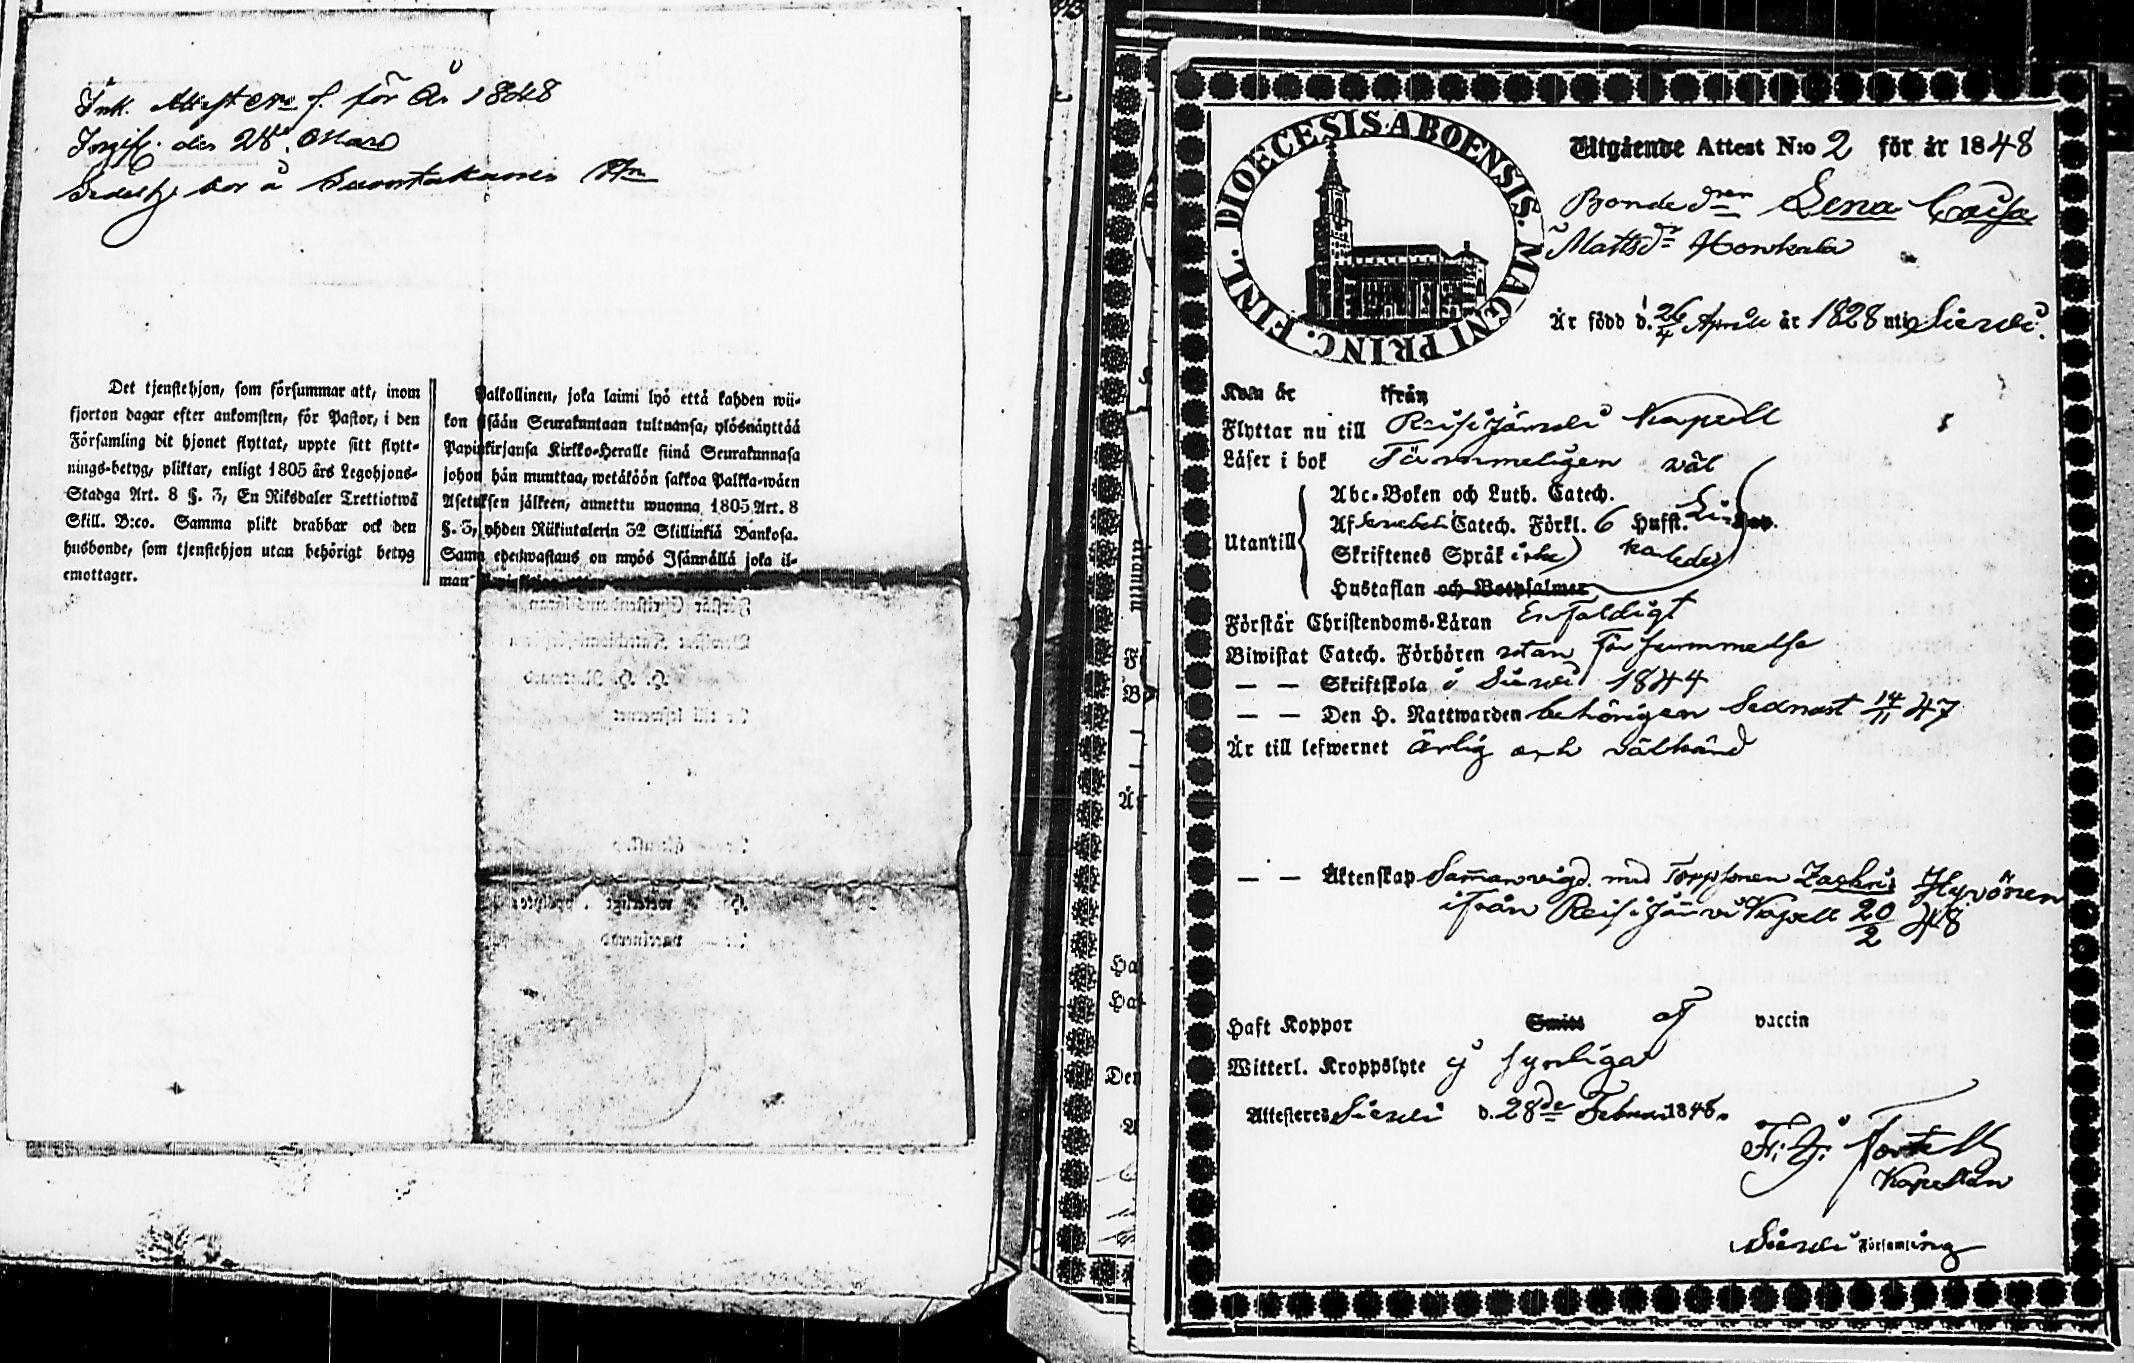 Ink. Attest för År 1848
den 28 Mars
bor å
Det tjenstehjon, som försummar att, inom
fjorton dagar efter ankomsten, för Pastor, i den
Församling dit hjonet flyttat, uppte sitt flytt-
nings-betyg, pliktar, enligt 1805 års Legohjons-
Stadga Art. 8 §. 3, En Riksdaler Trettiotwå
Skill. B:co. Samma plikt drabbar ock den
husbonde, som tjenstehjon utan behörigt betyg
emottager.
Palkollinen, joka laimi lyö että kahden wii-
kon sisään Seurakuntaan tultuansa, ylösnäyttää
Papinkirjansa Kirkko-Heralle siinä Seurakunnasa
johon hän muuttaa, wetäköön sakkoa Palkka-wäen
Asetuksen jälkeen, annettu wuonna 1805 Art. 8
§. 3, yhden Riikintalerin 32 Killinkiä Bankosa.
Sama edeswastaus on myös Isännällä joka il-
man
DIOECESIS ABOENSIS. MAGNI PRINC. FINL.
Utgående Attest N:o 2 för år 1848
Bonded:ren Lena Caisa
Mattsd:r Honkala
Är född d. 26/4 Aprile år 1828 uti Sievi.
Kom år ifrån
Flyttar nu till Reisijärvi Kapell
Läser i bok Tämmeligen väl
Utantill
Abc-Boken och Luth. Catech.
Af Svebeli Catech. Förkl. 6 Hufst.
Skriftenes Språk icke
Hustaflan och Botpsalmer
Förstår Christendoms-Läran Enfaldigt
Biwistat Catech. Förhören utan Försummelse
— — Skriftskola i Sievi 1844
— — Den H. Nattwarden behörigen Sednast 14/11 47
Är till lefwernet ärlig och välkänd
— — Äktenskap Sammanvigd med Torpsonen Zachris Hyvönen
ifrån Reisijärvi Kapell 20/2 48
Haft Koppor Smitt af vaccin
Witterl. Kroppslyte ej synliga
Attesteres Sievi d. 28de Februari 1848.
F. J. Kapellan
Sievi Församling